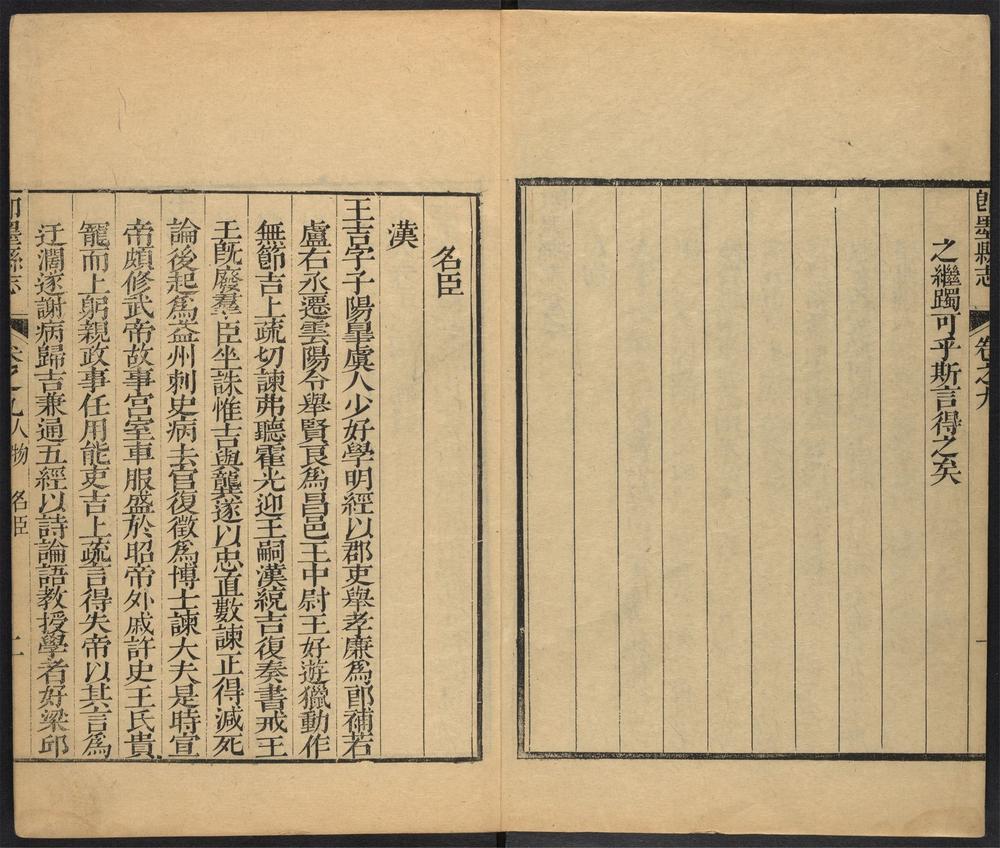 即墨縣志
卷之九
一
之繼躅可乎斯言得之矣
名臣
漢
王吉字子陽皐虞人少好學明經以郡吏舉孝廉爲郎補若
盧右丞遷雲陽令舉賢良爲昌邑王中尉王好遊獵動作
無節吉上疏切諫弗聽霍光迎王嗣漢統吉復奏書戒王
王旣廢羣臣坐誅惟吉與龔遂以忠直數諫正得減死
論後起爲益州刺史病去官復徵爲博士諫大夫是時宣
帝頗修武帝故事宮室車服盛於昭帝外戚許史王氏貴
寵而上躬親政事任用能吏吉上疏言得失帝以其言爲
迂濶遂謝病歸吉兼通五經以詩論語教授學者好梁邱
即墨縣志
卷之九
人物
名臣
二